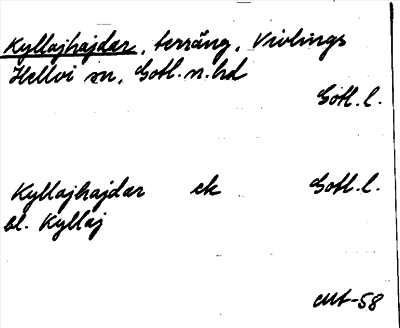 Kyllajhajdar, terräng, Vivlings
Hellvi sn, Gotl. n. hd
Gotl. l.
Kyllajhajdar ek Gotl. l.
bl. Kyllaj
-58